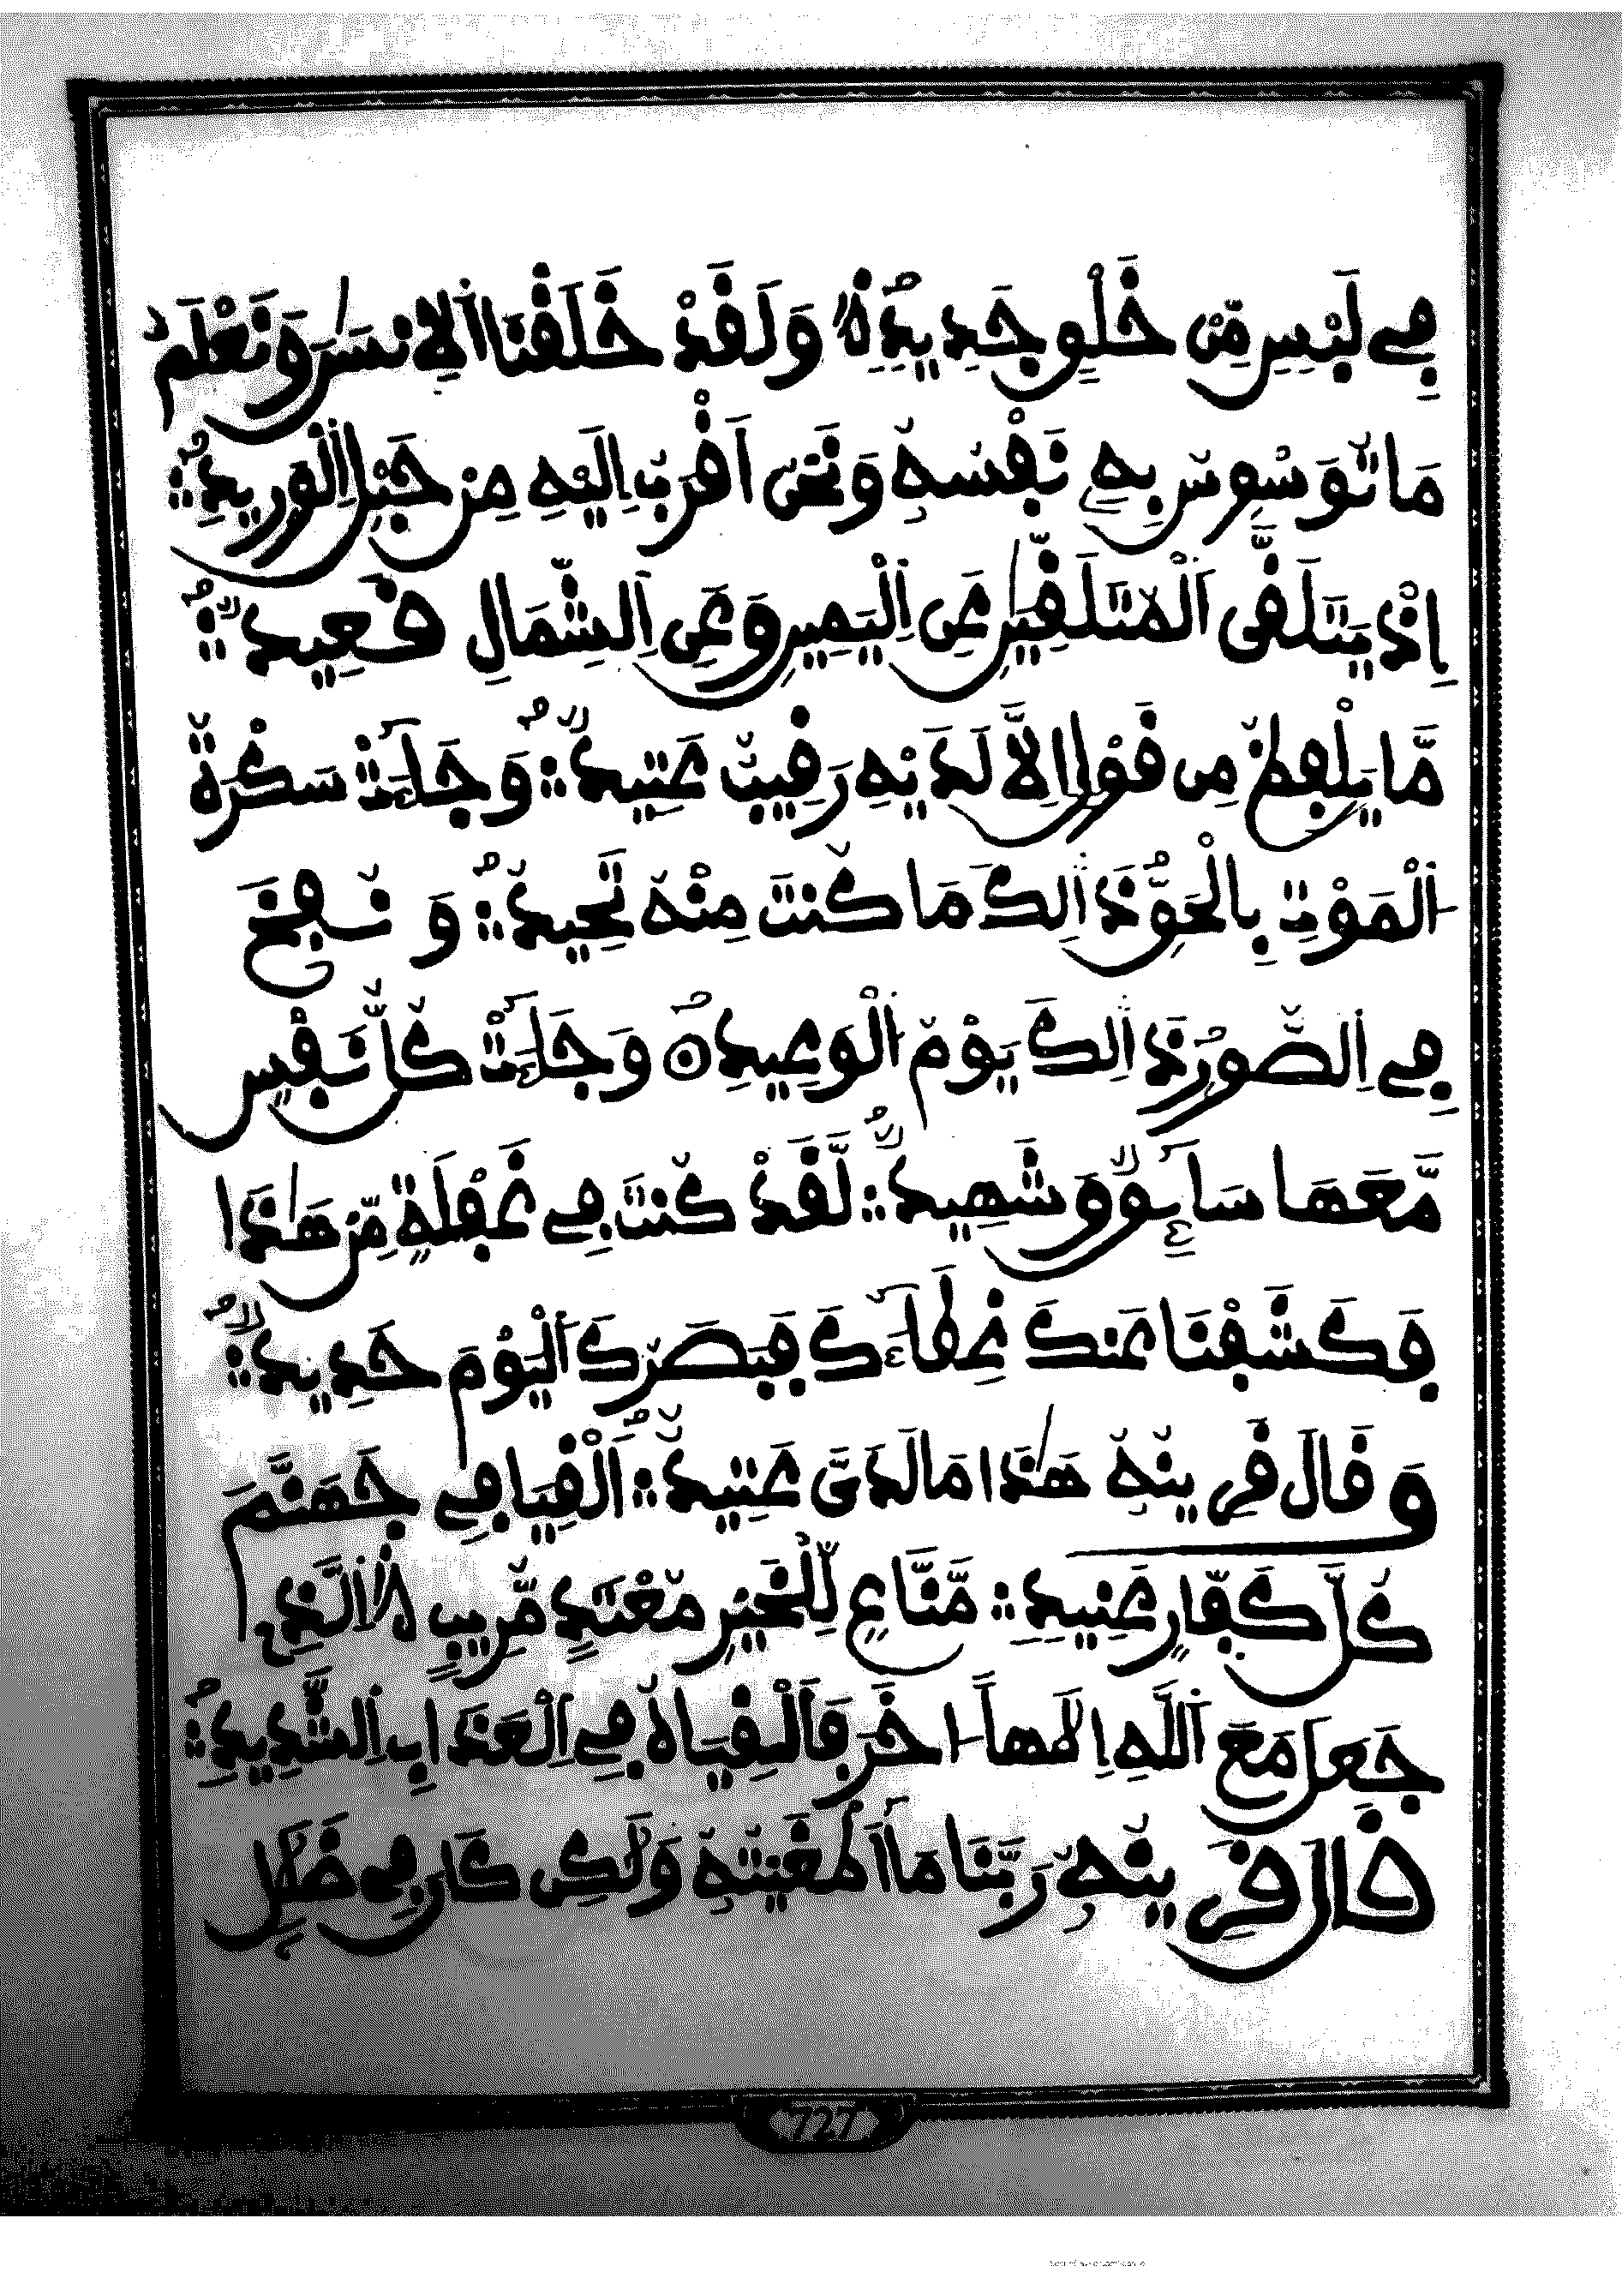 فِے لَبْسٍ مِّنْ خَلْقٍ جَدِيدٍ وَلَقَدْ خَلَقْنَا اَ۬لِانسَٰنَ وَنَعْلَمُ
مَا تُوَسْوِسُ بِهِۦ نَفْسُهُۥ وَنَحْنُ أَقْرَبُ إِلَيْهِ مِنْ حَبْلِ اِ۬لْوَرِيدِ
إِذْ يَتَلَقَّى اَ۬لْمُتَلَقِّيَٰنِ عَنِ اِ۬لْيَمِينِ وَعَنِ اِ۬لشِّمَالِ قَعِيدٌ
مَّا يَلْفِظُ مِن قَوْلٍ اِلَّا لَدَيْهِ رَقِيبٌ عَتِيدٌ وَجَآءَتْ سَكْرَةُ
اُ۬لْمَوْتِ بِالْحَقِّ ذَٰلِكَ مَا كُنتَ مِنْهُ تَحِيدُ وَنُفِخَ
فِے اِ۬لصُّورِ ذَٰلِكَ يَوْمُ اُ۬لْوَعِيدِ وَجَآءَتْ كُلُّ نَفْسٍ
مَّعَهَا سَآئِقٌ وَشَهِيدٌ لَّقَدْ كُنتَ فِے غَفْلَةٍ مِّنْ هَٰذَا
فَكَشَفْنَا عَنكَ غِطَآءَكَ فَبَصَرُكَ اَ۬لْيَوْمَ حَدِيدٌ
وَقَالَ قَرِينُهُۥ هَٰذَا مَا لَدَيَّ عَتِيدٌ اَلْقِيَا فِے جَهَنَّمَ
كُلَّ كَفَّارٍ عَنِيدٍ مَّنَّاعٍ لِّلْخَيْرِ مُعْتَدٍ مُّرِيبٍ اِ۬لَّذِے
جَعَلَ مَعَ اَ۬للَّهِ إِلَٰهاً اٰخَرَ فَأَلْقِيَاهُ فِے اِ۬لْعَذَابِ اِ۬لشَّدِيدِ
قَالَ قَرِينُهُۥ رَبَّنَا مَآ أَطْغَيْتُهُۥ وَلَٰكِن كَانَ فِے ضَلَٰلٍ
727